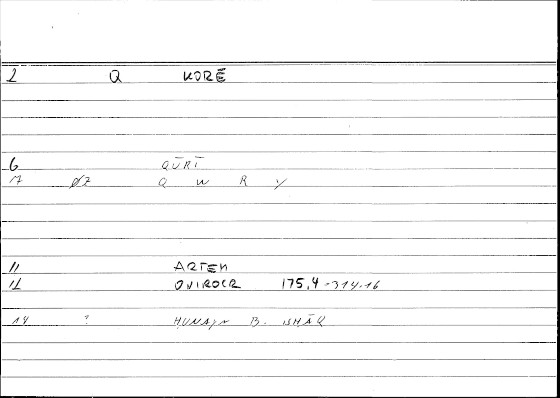 2 Q KORĒ
6 QŪRĪ
17 07 Q W R Y
11 ARTEM
12 ONIROCR 175,4-314-16
14 ? ḤUNAYN B. ISḤĀQ